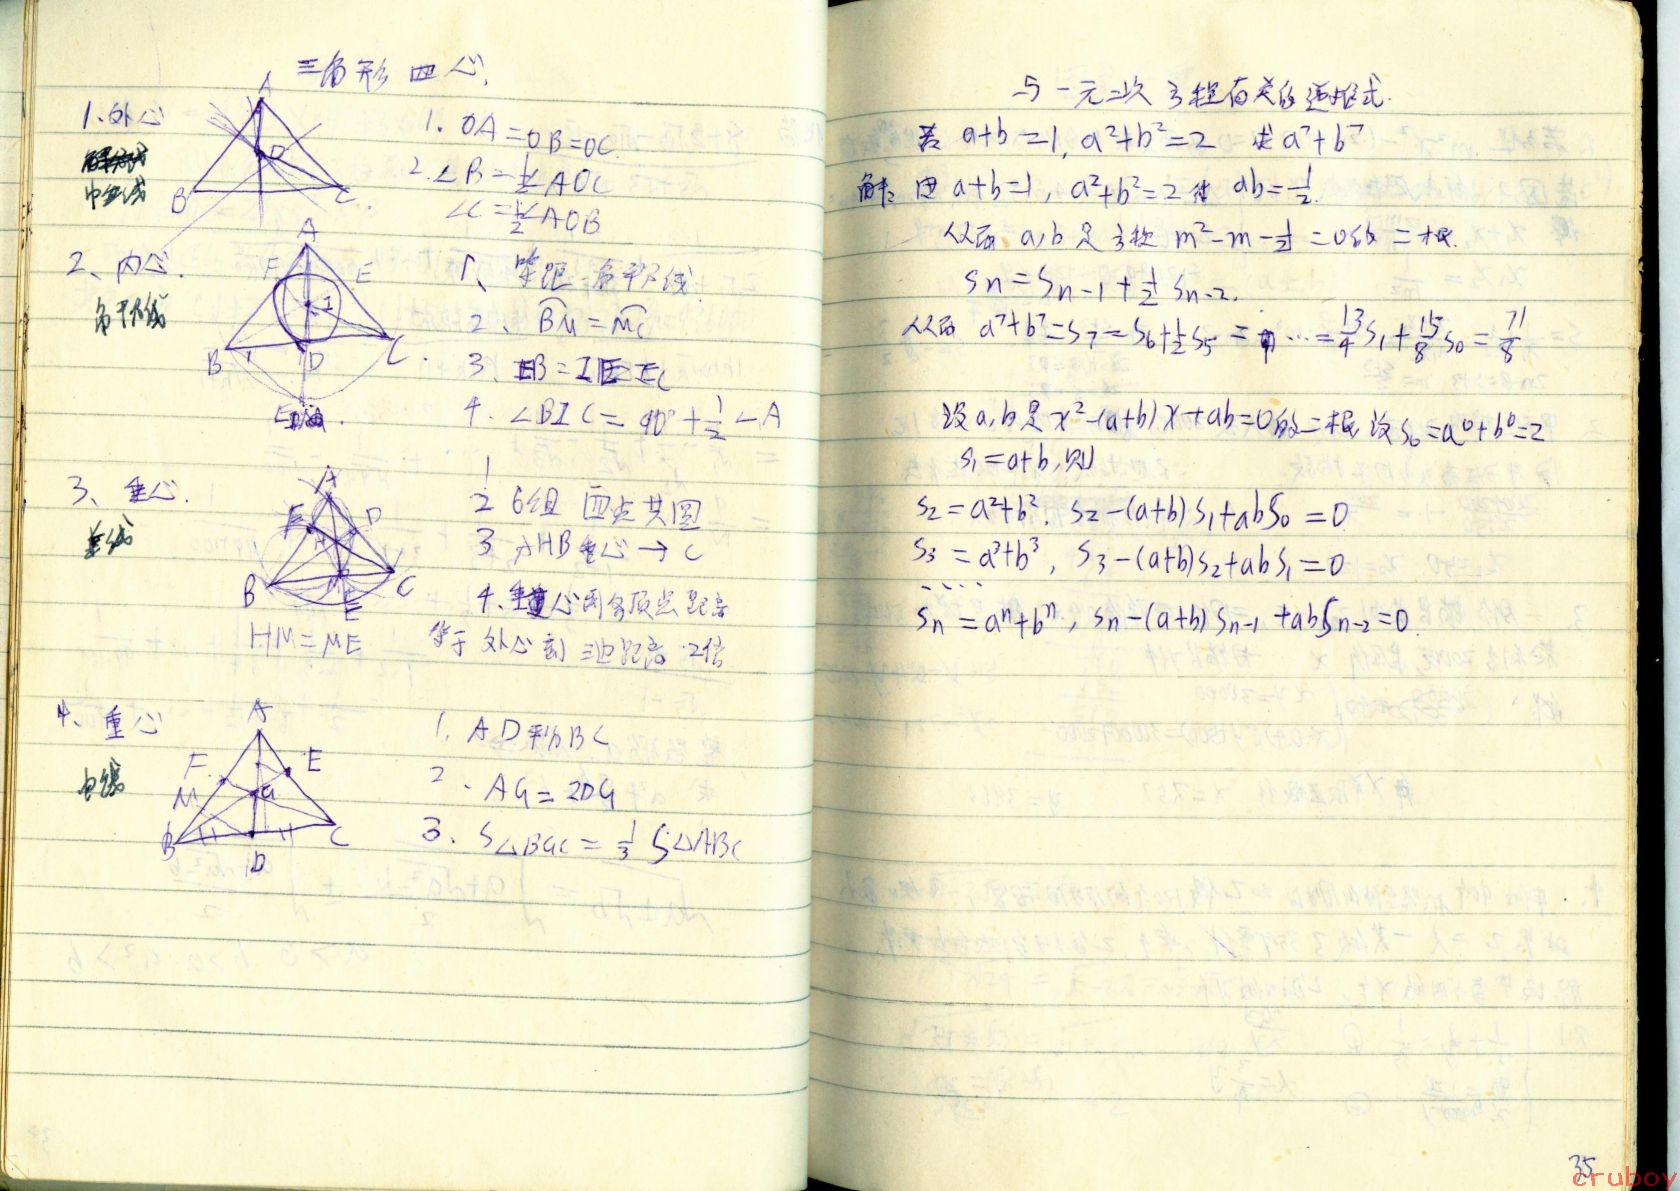 三角形四心.
1.外心
中垂线
A
O
B
C
1. OA=OB=OC
2. ∠B=½∠AOC
∠C=½∠AOB
2、内心.
角平分线
A
F
E
I
B
D
C
1、等距 角平分线.
2、BM=MC
3. IB=IE=IC
4. ∠BIC=90°+½∠A
3、垂心.
垂线
A
F
D
H
M
B
C
E
HM=ME
1
2 6组 四点共圆
3 AHB垂心→C
4.垂心到各顶点距离
等于外心到三边距离2倍
4、重心
中线
A
F
E
M
G
B
D
C
1. AD平分BC
2. AG=2DG
3. S△BGC=⅓S△ABC
与一元二次方程有关的递推式.
若 a+b=1, a²+b²=2 求a⁷+b⁷
解: 由a+b=1, a²+b²=2得 ab=-½.
从而 a,b是方程 m²-m-½=0的二根.
Sn=Sn-1+½Sn-2.
从而 a⁷+b⁷=S7=S6+½S5=…=13/4 S1+15/8 S0=71/8
设a,b是x²-(a+b)x+ab=0的二根,设S0=a⁰+b⁰=2
S1=a+b,则
S2=a²+b², S2-(a+b)S1+abS0=0
S3=a³+b³, S3-(a+b)S2+abS1=0
....
Sn=aⁿ+bⁿ, Sn-(a+b)Sn-1+abSn-2=0
35
cruboy